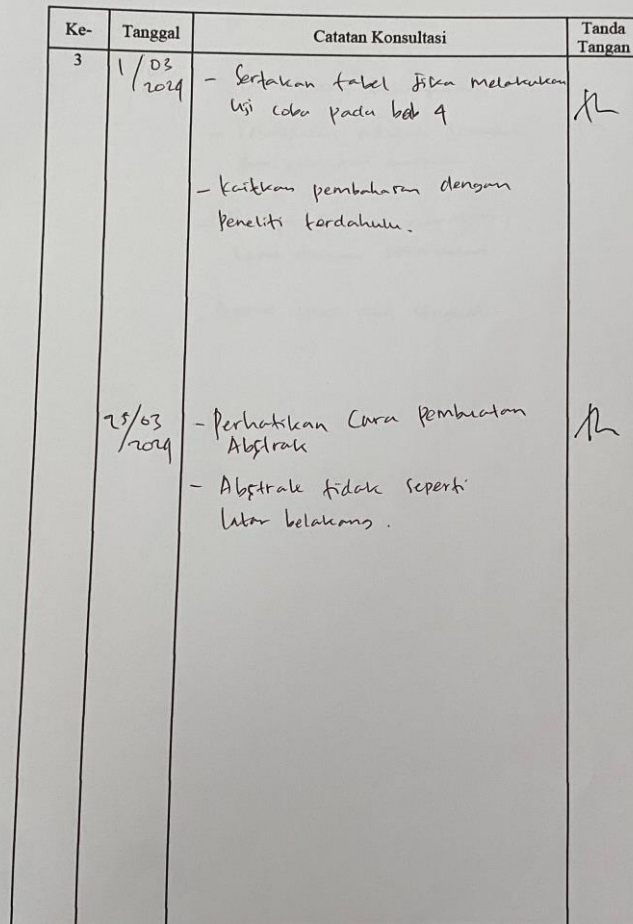 Ke- Tanggal Catatan Konsultasi Tanda Tangan
3 1/03/2024 - Sertakan tabel jika melakukan
uji coba pada bab 4
- Kaitkan pembahasan dengan
Peneliti terdahulu.
25/03/2024 - Perhatikan Cara Pembuatan
Abstrak
- Abstrak tidak seperti
latar belakang.